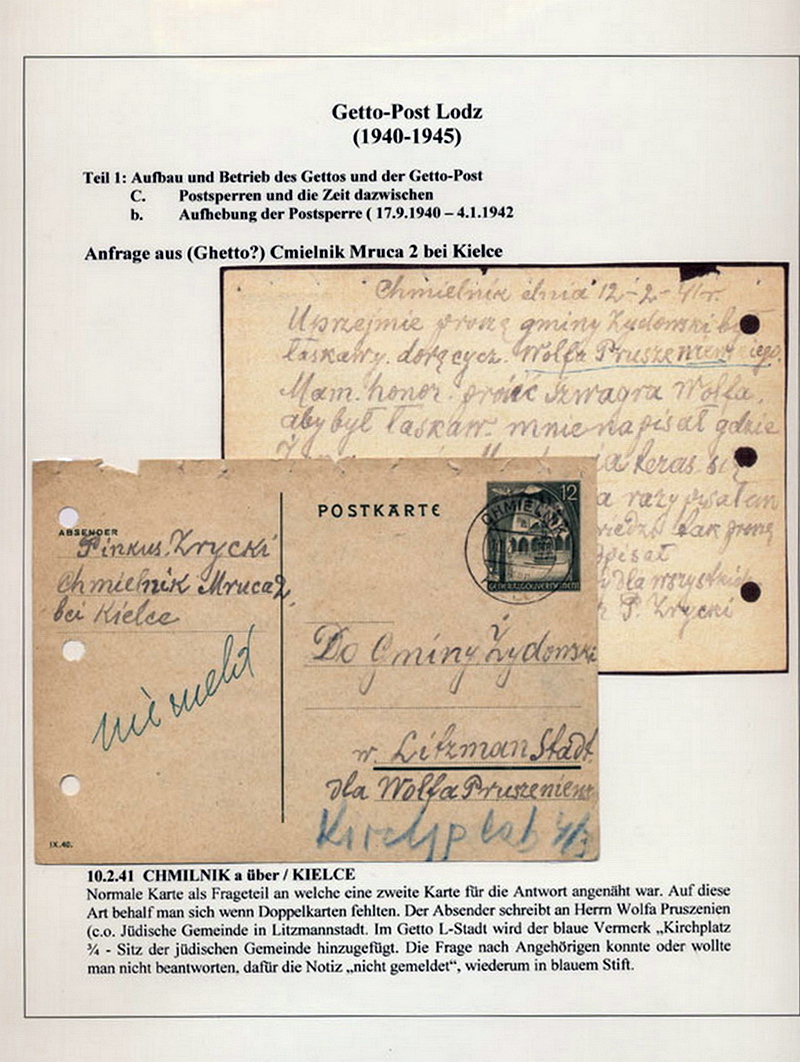 Getto-Post Lodz
(1940-1945)
Teil 1: Aufbau und Betrieb des Gettos und der Getto-Post
C. Postsperren und die Zeit dazwischen
b. Aufhebung der Postsperre ( 17.9.1940 – 4.1.1942
Anfrage aus (Ghetto?) Cmielnik Mruca 2 bei Kielce
Chmielnik dnia 12-2-41 r.
Uprzejmie proszę gminy Żydowski był
łaskawy. doręcycz. Wolfa
Mam. honor. prosić szwagra Wolfa.
aby był łaskaw. mnie napisał gdzie
teras.
a razy pisałem
proszę
P. Zrycki
POSTKARTE
12
CHMIELNIK
GENERALGOUVERNEMENT
ABSENDER
Pinkus. Zrycki
Chmielnik Mruca 2,
bei Kielce
Do Gminy Żydowski
w. Litzmanstadt
dla Wolfa Pruszenien
Kirchplat 4/3
IX.40.
10.2.41 CHMILNIK a über / KIELCE
Normale Karte als Frageteil an welche eine zweite Karte für die Antwort angenäht war. Auf diese
Art behalf man sich wenn Doppelkarten fehlten. Der Absender schreibt an Herrn Wolfa Pruszenien
(c.o. Jüdische Gemeinde in Litzmannstadt. Im Getto L-Stadt wird der blaue Vermerk „Kirchplatz
¾ - Sitz der jüdischen Gemeinde hinzugefügt. Die Frage nach Angehörigen konnte oder wollte
man nicht beantworten, dafür die Notiz „nicht gemeldet“, wiederum in blauem Stift.